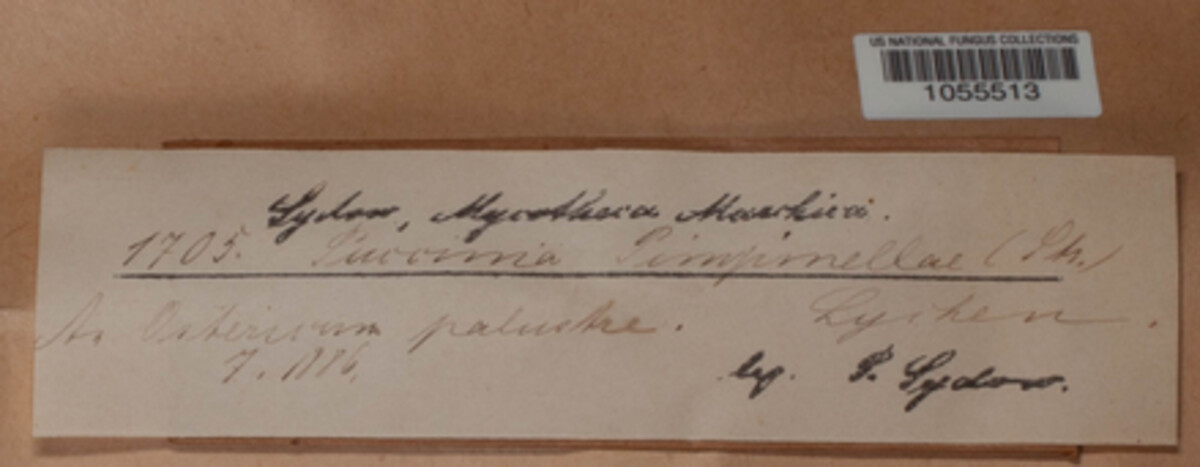 US NATIONAL FUNGUS COLLECTIONS
1055513
Sydow, Mycotheca Marchica.
1705. Puccinia Pimpinellae (Str.)
An Ostericum palustre. Lychen.
7. 1886.
leg. P. Sydow.